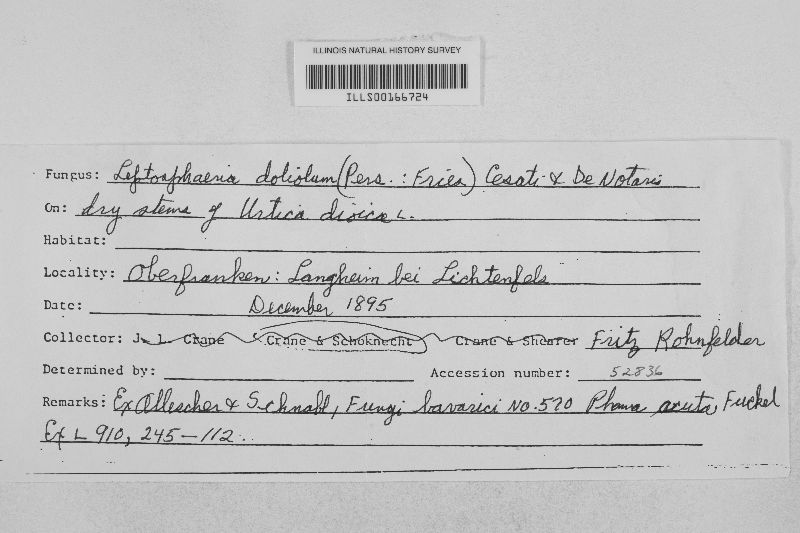 ILLINOIS NATURAL HISTORY SURVEY
ILLS00166724
Fungus: Leptosphaeria doliolum (Pers. : Fries) Cesati & De Notaris
On: dry stems of Urtica dioica L.
Habitat:
Locality: Oberfranken: Langheim bei Lichtenfels
Date: December 1895
Collector: J. L. Crane Crane & Schoknecht Crane & Shearer Fritz Rohnfelder
Determined by: Accession number: 52836
Remarks: Ex Allescher & Schnabl, Fungi bavarici No. 570 Phoma acuta, Fuckel
Ex L 910, 245-112